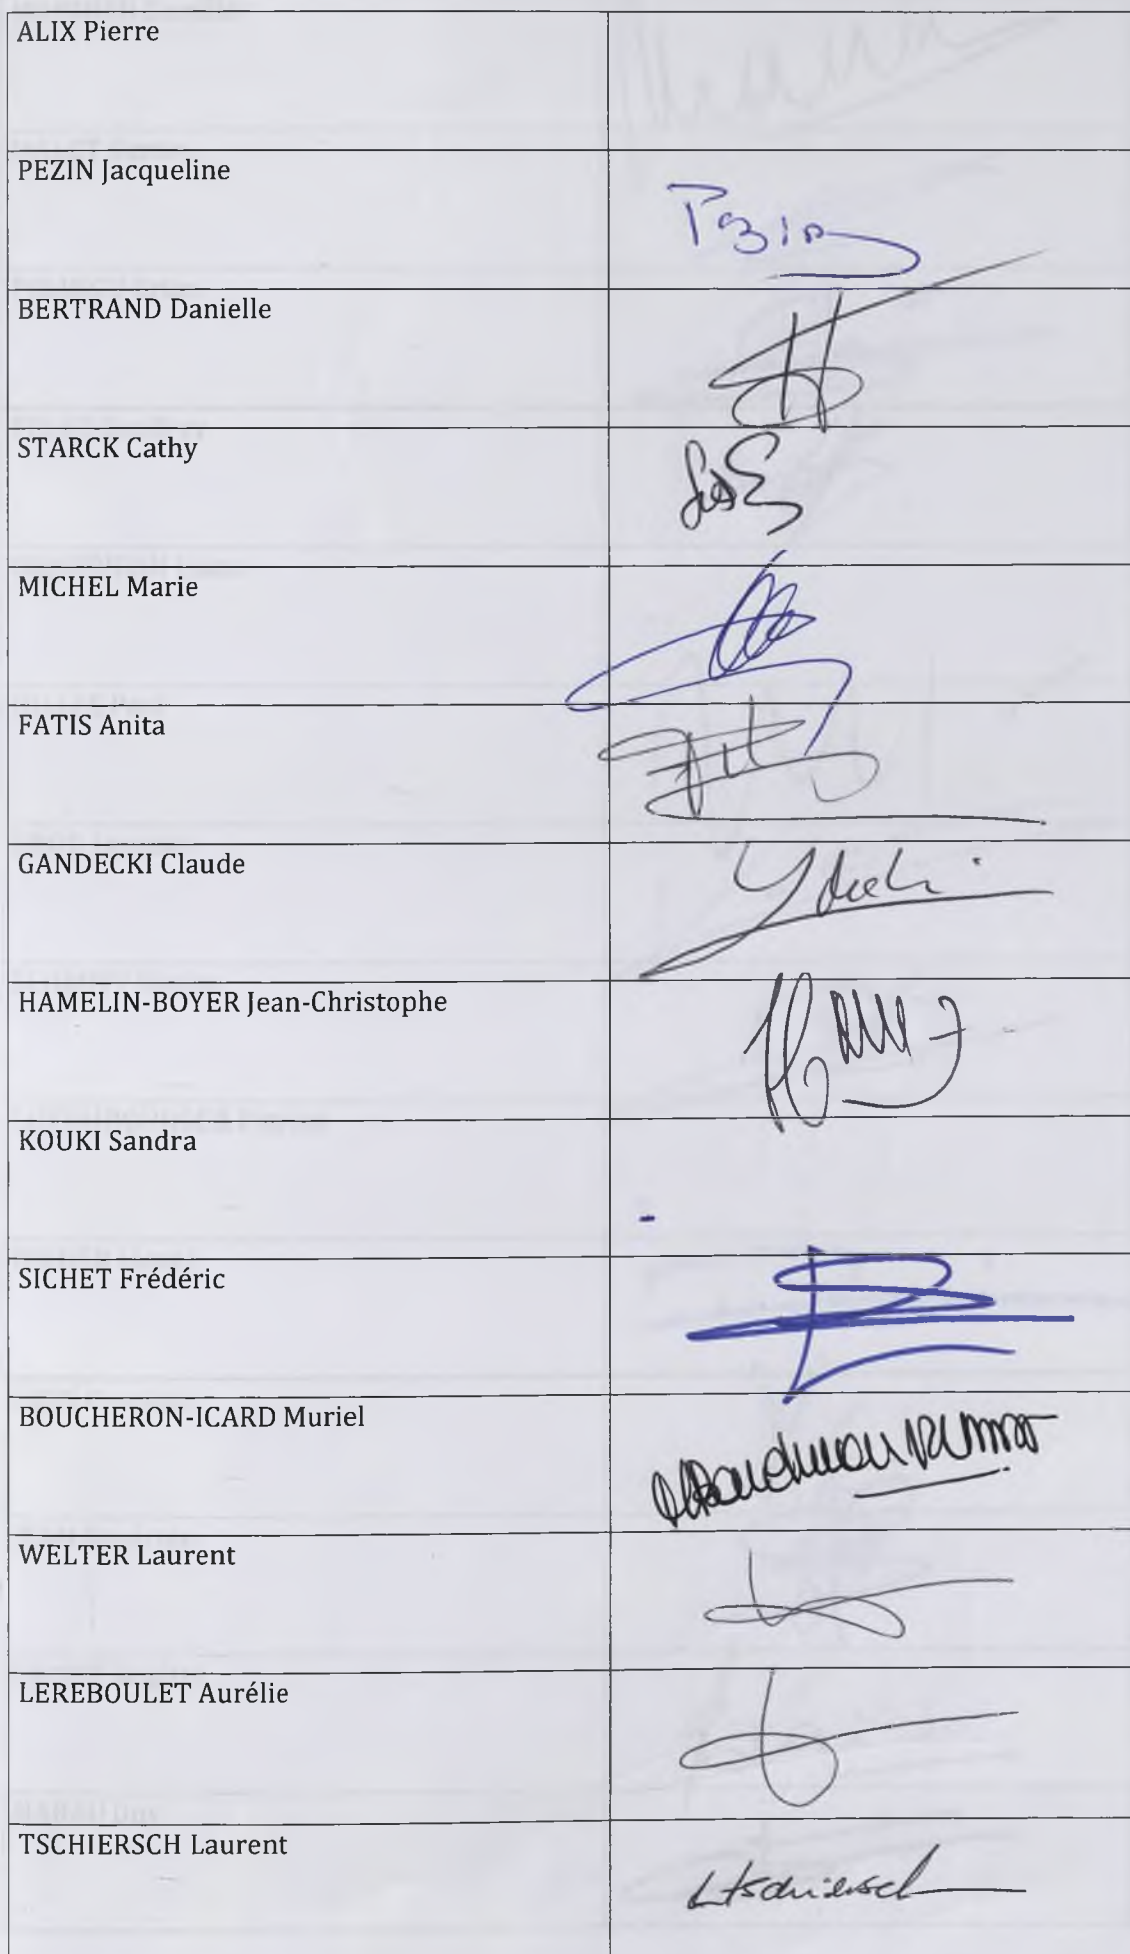 ALIX Pierre
PEZIN Jacqueline
Pezin
BERTRAND Danielle
STARCK Cathy
MICHEL Marie
FATIS Anita
GANDECKI Claude
HAMELIN-BOYER Jean-Christophe
KOUKI Sandra
-
SICHET Frédéric
BOUCHERON-ICARD Muriel
WELTER Laurent
LEREBOULET Aurélie
TSCHIERSCH Laurent
Ltschiersch